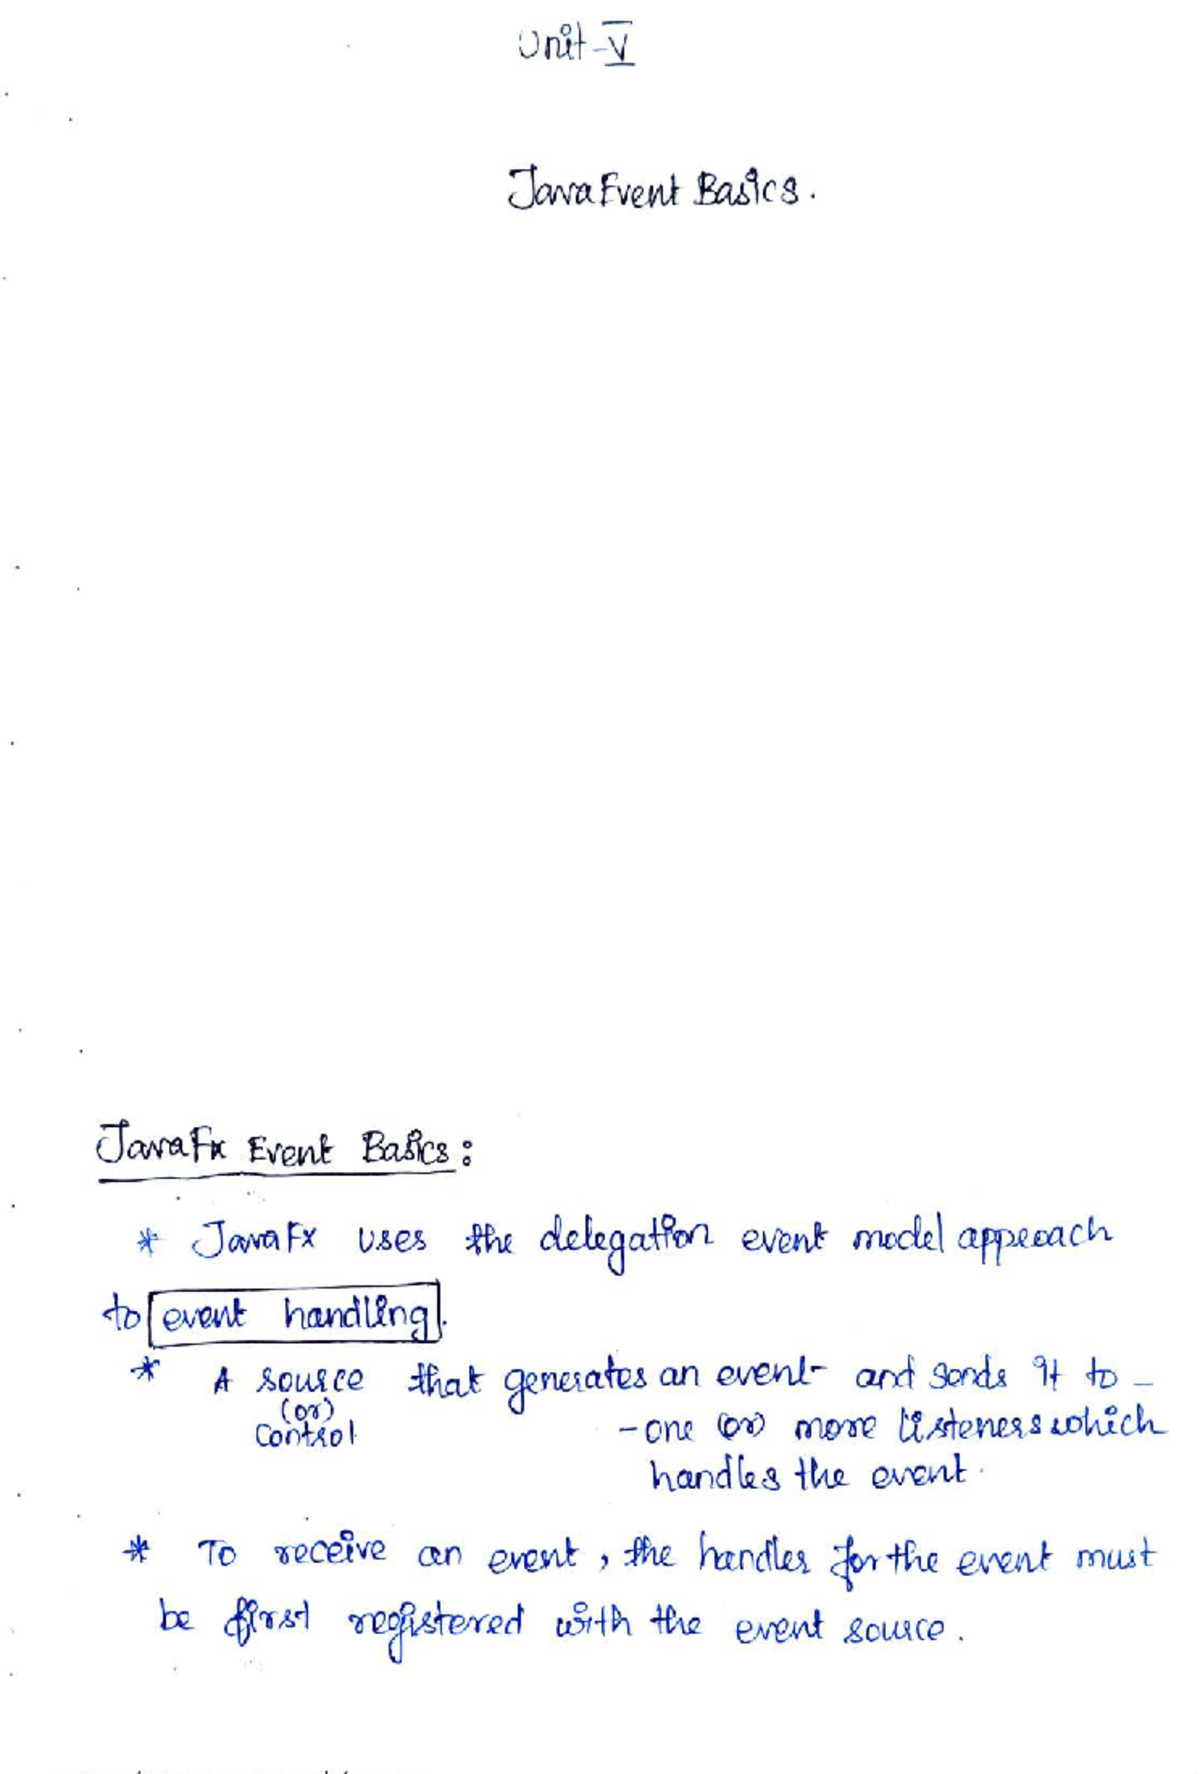 Unit-V
Java Event Basics.
JavaFx Event Basics:
* JavaFx uses the delegation event model approach
to event handling.
* A source that generates an event and sends it to -
(or)
Control
- one (or) more listeners which
handles the event.
* To receive an event, the handler for the event must
be first registered with the event source.